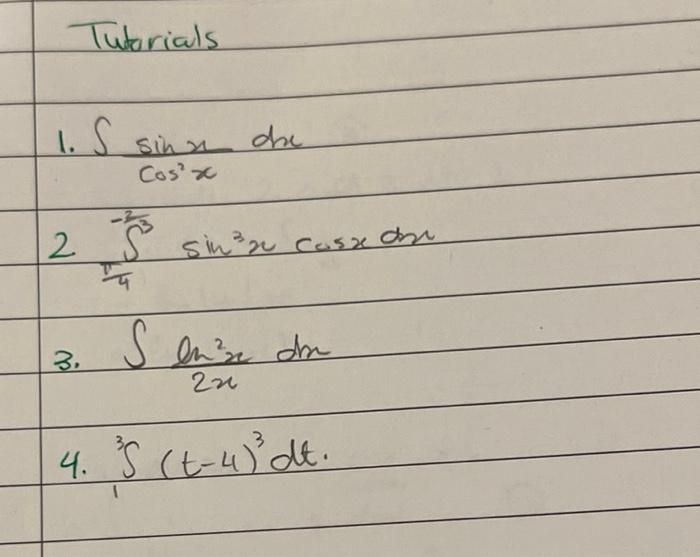 Tutorials
1. ∫ sin x / cos² x dx
2 ∫ sin³x cosx dx
3. ∫ ln²x / 2x dx
4. ³∫₁ (t-4)³ dt.